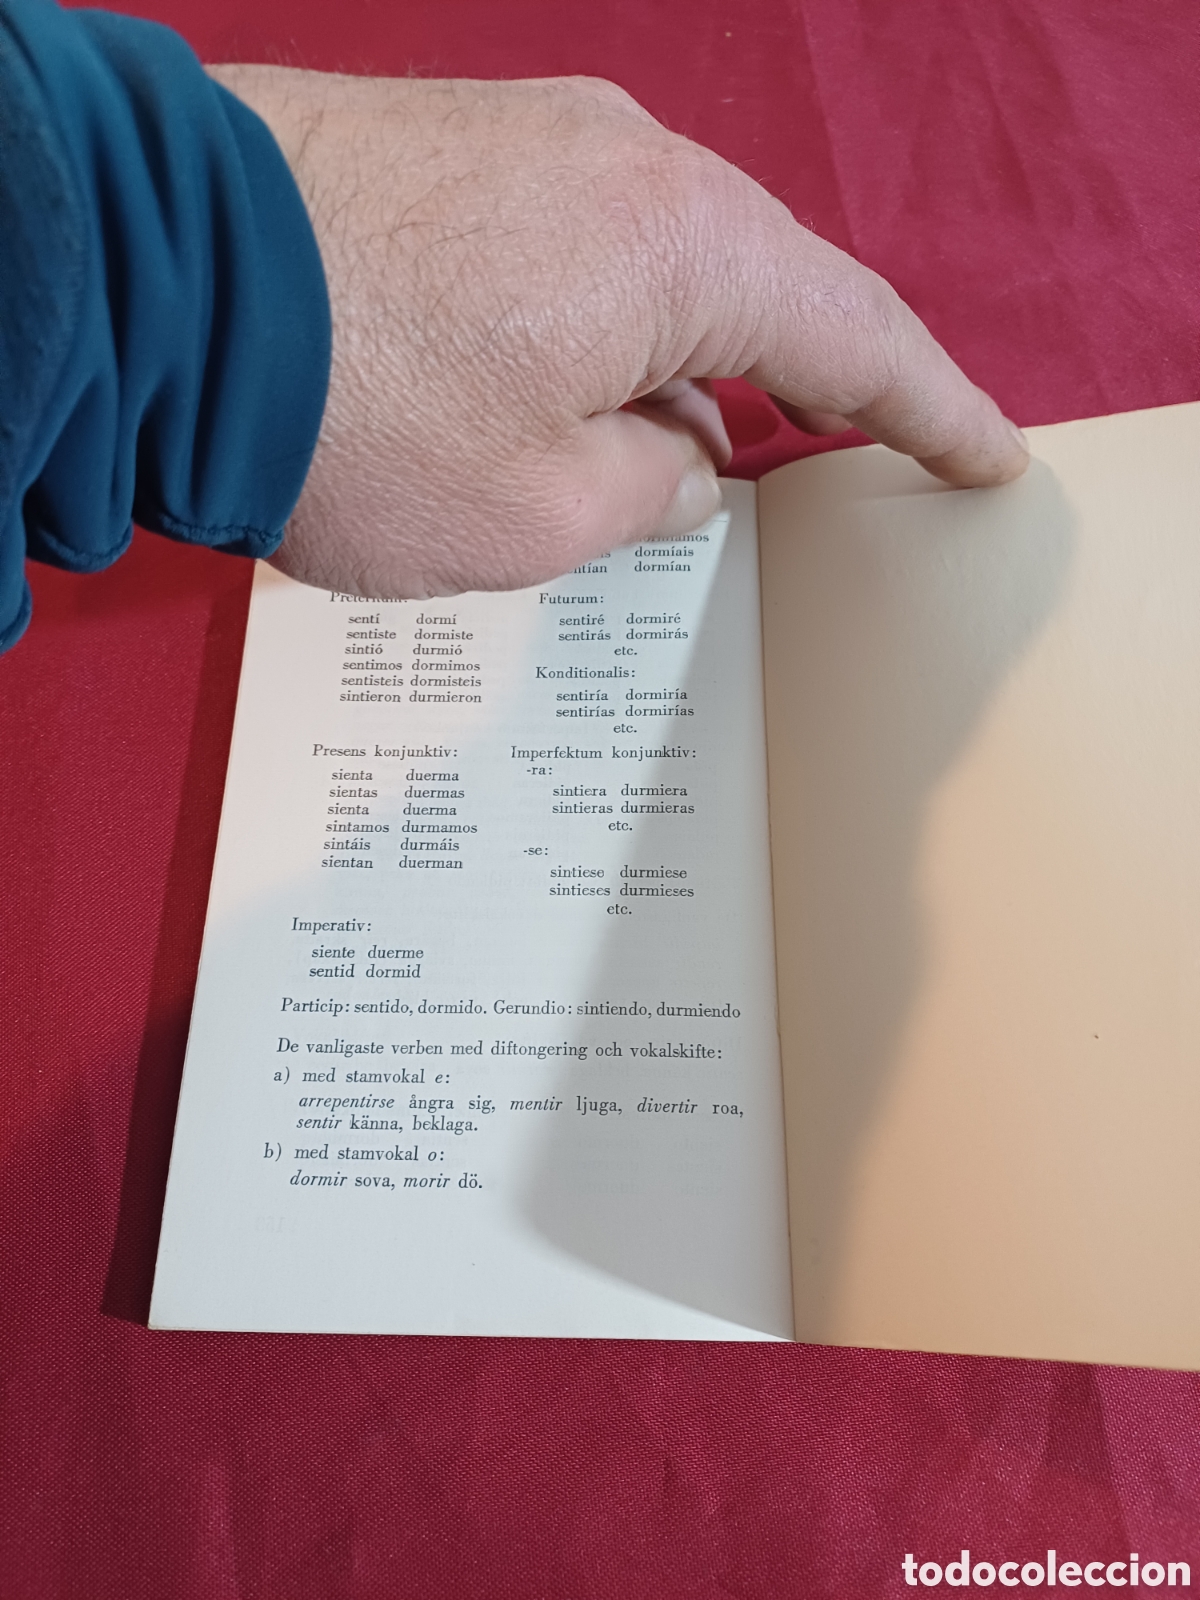 dormíais
dormían
Preteritum:
sentí dormí
sentiste dormiste
sintió durmió
sentimos dormimos
sentisteis dormisteis
sintieron durmieron
Futurum:
sentiré dormiré
sentirás dormirás
etc.
Konditionalis:
sentiría dormiría
sentirías dormirías
etc.
Presens konjunktiv:
sienta duerma
sientas duermas
sienta duerma
sintamos durmamos
sintáis durmáis
sientan duerman
Imperfektum konjunktiv:
-ra:
sintiera durmiera
sintieras durmieras
etc.
-se:
sintiese durmiese
sintieses durmieses
etc.
Imperativ:
siente duerme
sentid dormid
Particip: sentido, dormido. Gerundio: sintiendo, durmiendo
De vanligaste verben med diftongering och vokalskifte:
a) med stamvokal e:
arrepentirse ångra sig, mentir ljuga, divertir roa,
sentir känna, beklaga.
b) med stamvokal o:
dormir sova, morir dö.
todocoleccion